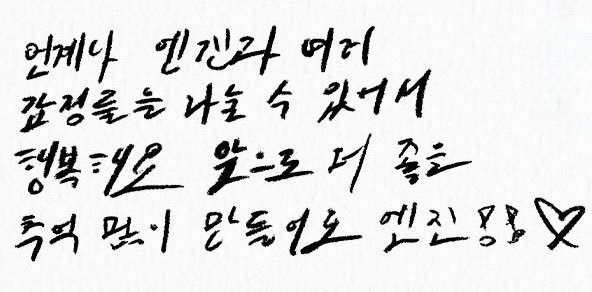 언제나 엔진과 여러
감정들을 나눌 수 있어서
행복해요 앞으로 더 좋은
추억 많이 만들어요 엔진 뿅뿅♡